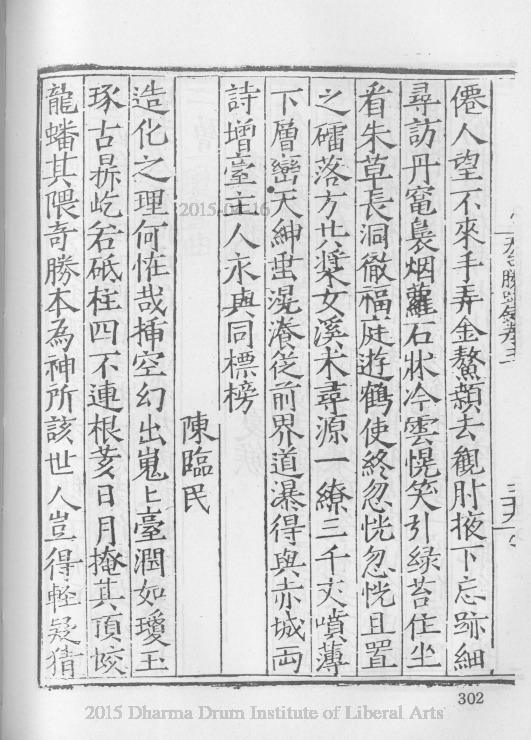 僊人望不來手弄金鰲顙去觀肘掖下忘跡細
尋訪丹竃曩烟蘿石牀冷雲幌笑引緑苔住坐
看朱草長洞徹福庭遊鶴使終忽恍忽恍且置
之礌落方
女溪米尋源一繚三千丈噴薄
下層巒天紳
滉瀁從前界道瀑得與赤城両
詩增臺主人永與同標榜
陳臨民
造化之理何恠哉揷空幻出嵬上臺潤如瓊玉
琢古
屹若砥柱四不連根荄日月掩其頂蛟
龍蟠其隈奇勝本為神所該世人豈得輕疑猜
天台勝跡錄卷三
302
2015-04-16
2015 Dharma Drum Institute of Liberal Arts